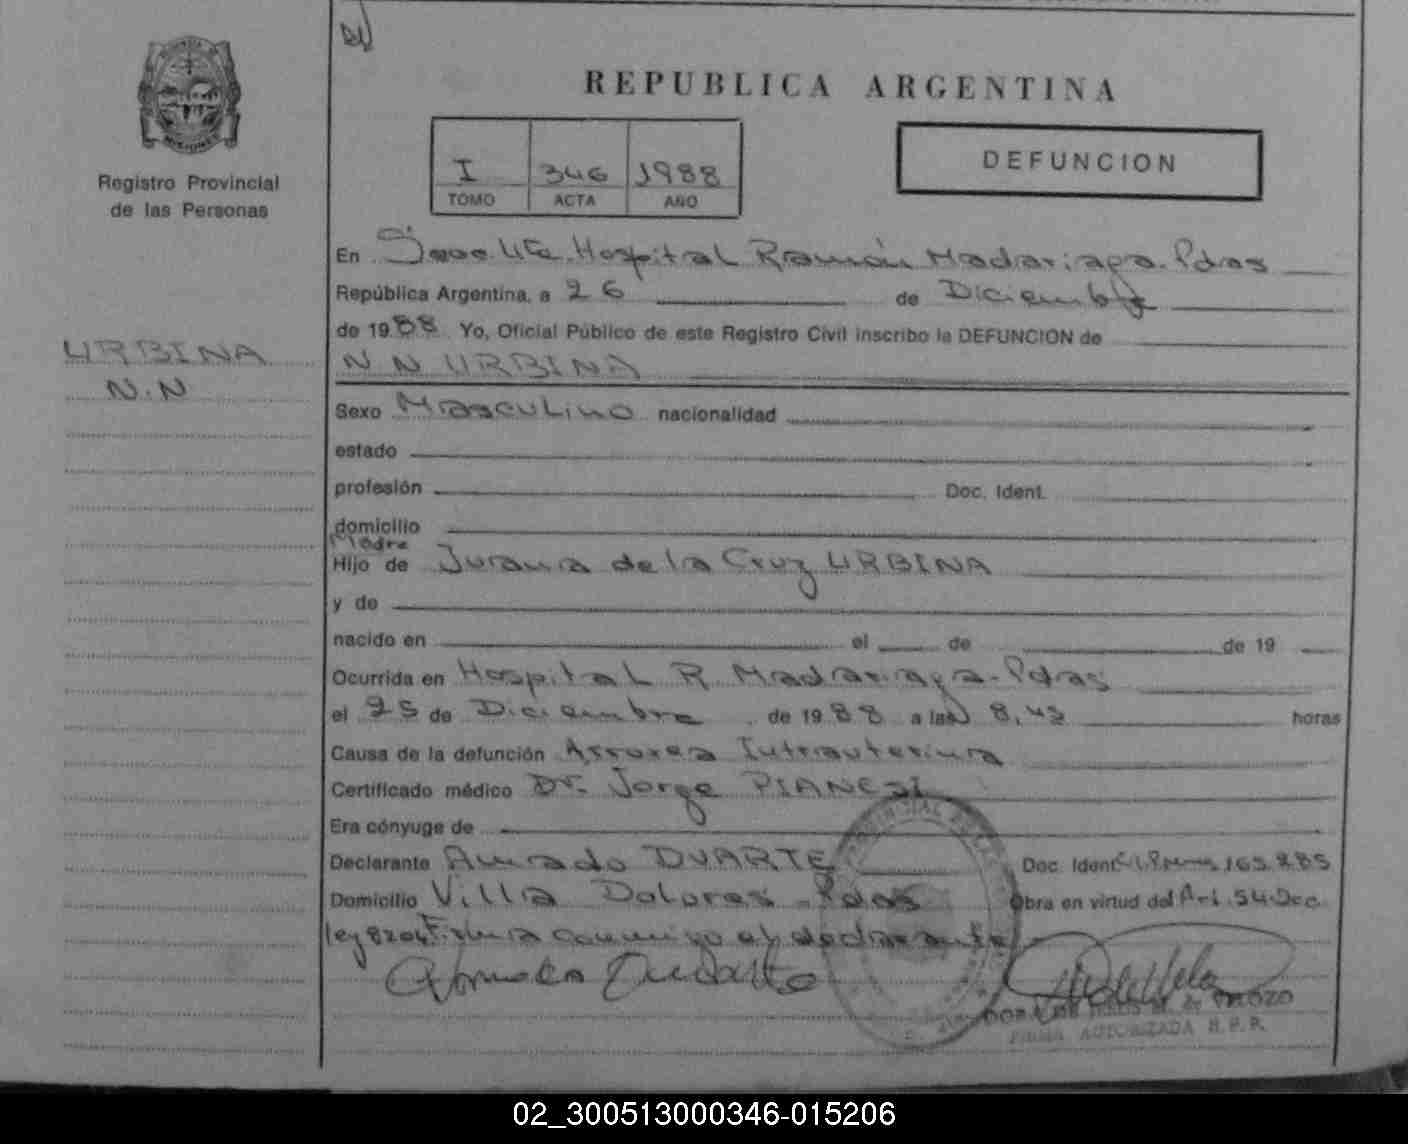 MISIONES
Registro Provincial
de las Personas
URBINA
N.N
REPUBLICA ARGENTINA
I 346 1988
TOMO ACTA AÑO
DEFUNCION
En Hospital Ramón Madariaga. Pdas
República Argentina, a 26 de Diciembre
de 1988 Yo, Oficial Público de este Registro Civil inscribo la DEFUNCION de
N N URBINA
Sexo Masculino nacionalidad
estado
profesión Doc. Ident.
domicilio
Madre
Hijo de Juana de la Cruz URBINA
y de
nacido en el de de 19
Ocurrida en Hospital R. Madariaga-Pdas
el 25 de Diciembre de 1988 a las 8,43 horas
Causa de la defunción Intrauterina
Certificado médico Dr. Jorge PIANESI
Era cónyuge de
Declarante Amado DUARTE Doc. Ident 165.285
Domicilio Villa Dolores Pdas Obra en virtud del Art. 54 Dec
ley 8204 Firma conmigo el declarante
Duarte
FIRMA AUTORIZADA R.P.P.
02_300513000346-015206